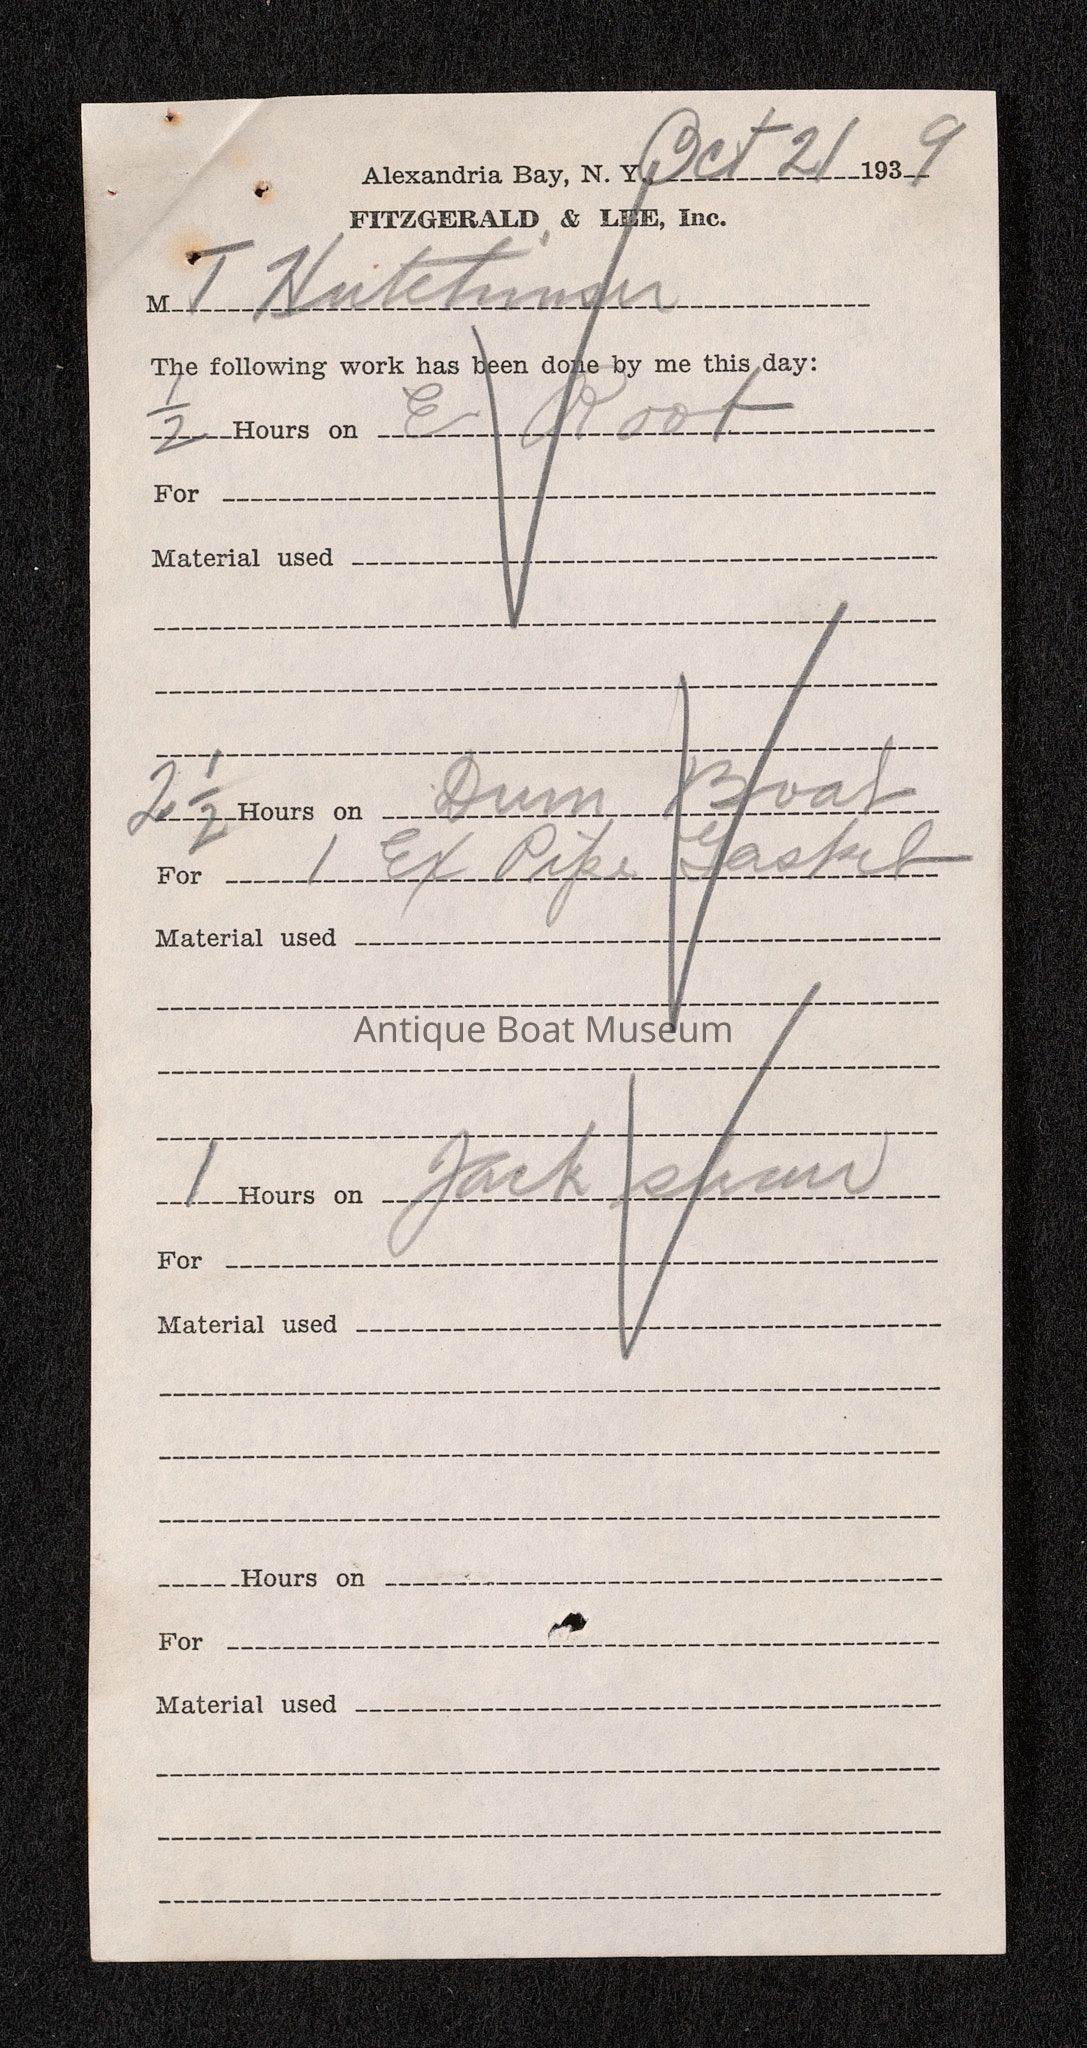 Alexandria Bay, N. Y. Oct 21 1939
FITZGERALD & LEE, Inc.
M T Hutchinson
The following work has been done by me this day:
1/2 Hours on E Root
For
Material used
2 1/2 Hours on Dum Boat
For 1 Ex Pipe Gasket
Material used
Antique Boat Museum
1 Hours on Jack
For
Material used
Hours on
For
Material used